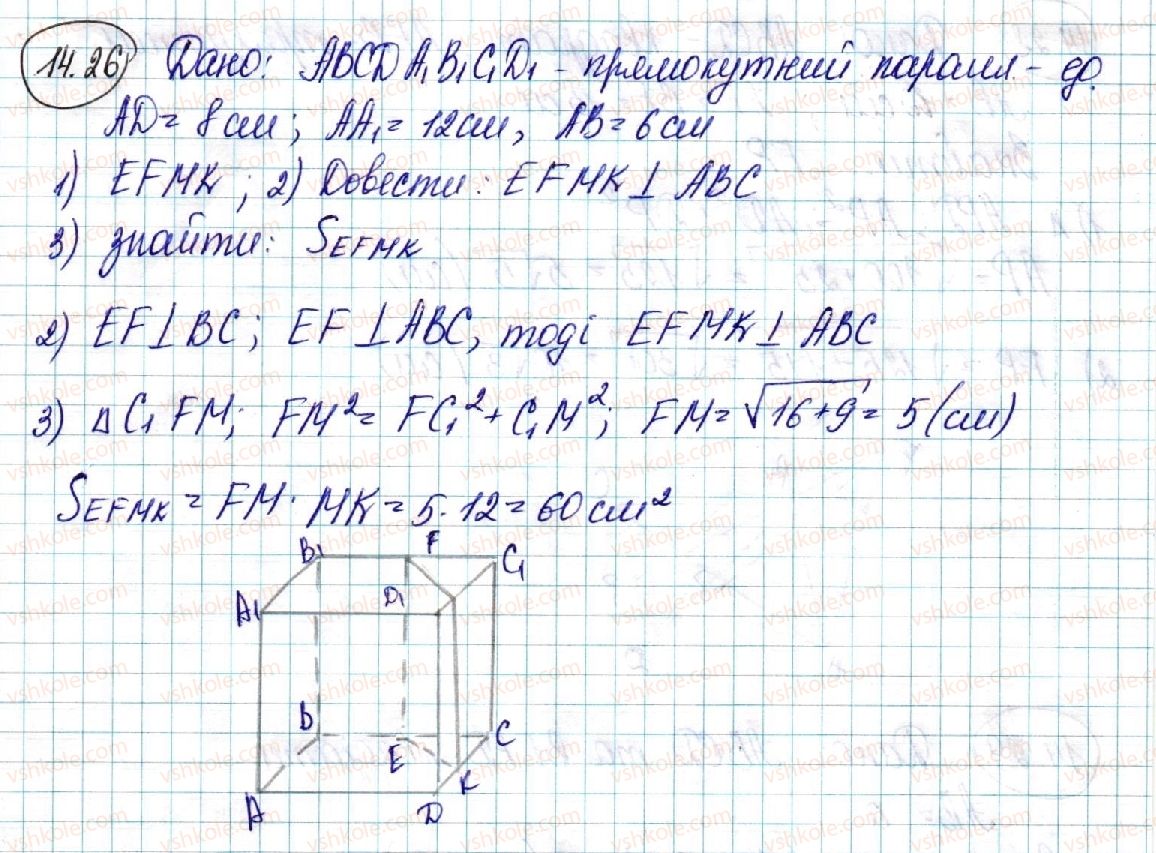 14.26 Дано: ABCDA₁B₁C₁D₁ - прямокутний парал-ед.
AD = 8 см; AA₁ = 12 см, AB = 6 см
1) EFMK; 2) Довести: EFMK ⊥ ABC
3) знайти: S_EFMK
2) EF ⊥ BC; EF ⊥ ABC, тоді EFMK ⊥ ABC
3) △C₁FM; FM² = FC₁² + C₁M²; FM = √16+9 = 5 (см)
S_EFMK = FM · MK = 5 · 12 = 60 см²
B₁ F C₁
A₁ D₁
B E C
K
A D
vshkole.com